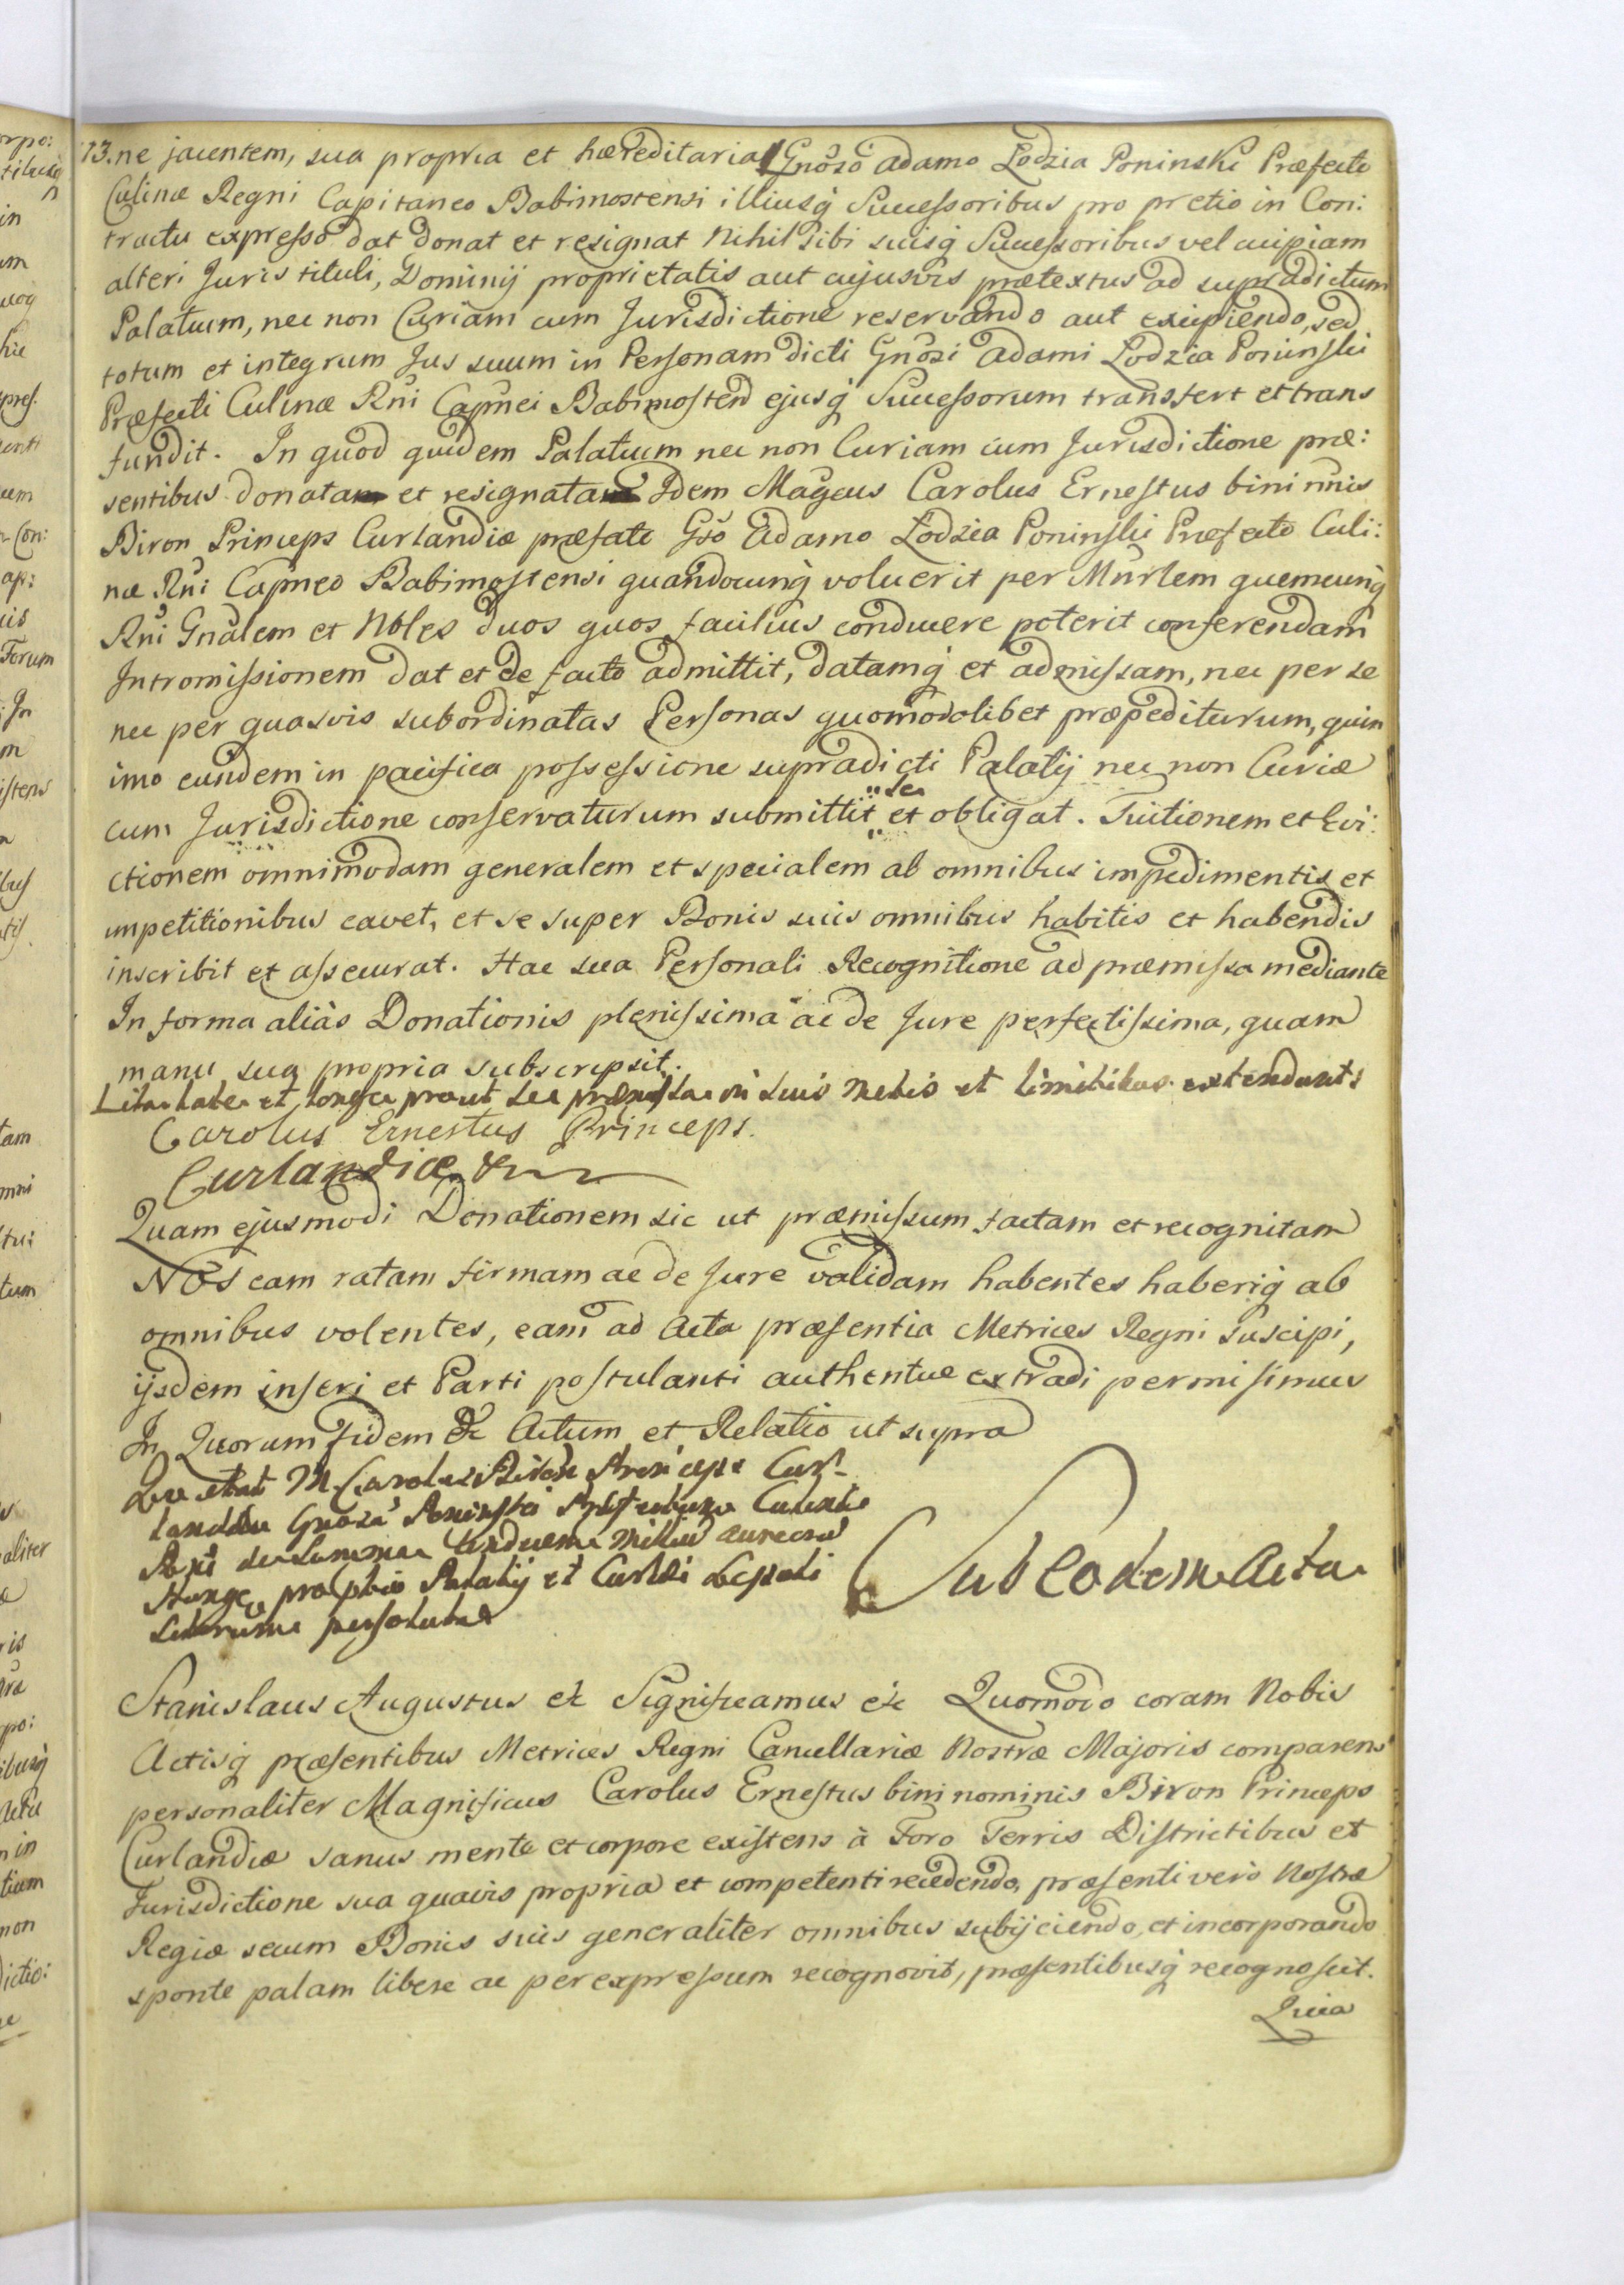 73. ne jacentem, sua propria et hæreditaria Gnoso Adamo Lodzia Poninski Præfecto
Culinæ Regni Capitaneo Babimostensi illiusq́ Successoribus pro pretio in Con:
tractu expresso dat donat et resignat Nihil sibi suisq́ Successoribus vel cuipiam
alteri Juris tituli, Dominij proprietatis aut cujusvis prætextus ad supradictum
Palatium, nec non Curiam cum Jurisdictione reservando aut excipiendo, sed
totum et integrum Jus suum in Personam dicti Gnosi Adami Lodzia Poninski
Præfecti Culinæ Rni Capnei Babimosten ejusq́ Successorum transfert et trans
fundit. In quod quidem Palatium nec non Curiam cum Jurisdictione præ:
sentibus donata et resignata Idem Magcus Carolus Ernestus bini nnis
Biron Princeps Curlandiæ præfato Gso Adamo Lodzia Poninski Præfecto Culi:
næ Rni Capneo Babimostensi quandocunq́ voluerit per Mnrlem quemcunq́
Rni Gnalem et Nbles duos quos facilius conducere poterit conferendam
Intromissionem dat et de facto admittit, datamq́ et admissam, nec per se
nec per quasvis subordinatas Personas quomodolibet præpediturum, quin
imo eundem in pacifica possessione supradicti Palatij nec non Curiæ
cum Jurisdictione conservaturum submittit se et obligat. Tuitionem et Evi:
ctionem omnimodam generalem et specialem ab omnibus impedimentis et
impetitionibus cavet, et se super Bonis suis omnibus habitis et habendis
inscribit et assecurat. Hac sua Personali Recognitione ad præmissa mediante
In forma aliàs Donationis plenissima ac de Jure perfectissima, quam
manu sua propria subscripsit.
Lita late et longe prout se præmissa in suis metis et limitibus extendunt
Carolus Ernestus Princeps
Curlandiæ
Quam ejusmodi Donationem sic ut præmissum factam et recognitam
NOS eam ratam firmam ac de Jure validam habentes haberiq́ ab
omnibus volentes, eam ad Acta præsentia Metrices Regni suscipi,
ijsdem inseri et Parti postulanti authentice extradi permisimus
In Quorum fidem &c Actum et Relatio ut supra
M. Carolus Biron Princeps Cur-
landiæ Gnosum Poninski Præfectum Culinæ
Rni de summa Undecim Millium aureorum
Hunge pro Palatij et Curiæ
persoluta
Sub Eodem Actu
Stanislaus Augustus &c Significamus &c Quomodo coram Nobis
Actisq́ præsentibus Metrices Regni Cancellariæ Nostræ Majoris comparens
personaliter Magnificus Carolus Ernestus bini nominis Biron Princeps
Curlandiæ sanus mente et corpore existens à Foro Terris Districtibus et
Jurisdictione sua quavis propria et competenti recedendo, præsenti verò Nostræ
Regiæ secum Bonis suis generaliter omnibus subijciendo, et incorporando
sponte palam libere ac per expressum recognovit, præsentibusq́ recognoscit.
Quia